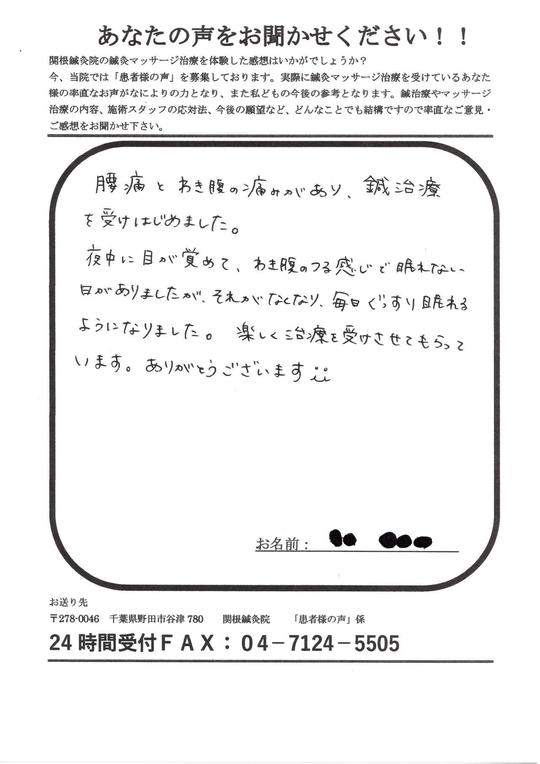 あなたの声をお聞かせください！！
関根鍼灸院の鍼灸マッサージ治療を体験した感想はいかがでしょうか？
今、当院では「患者様の声」を募集しております。実際に鍼灸マッサージ治療を受けているあなた
様の率直なお声がなによりの力となり、また私どもの今後の参考となります。鍼治療やマッサージ
治療の内容、施術スタッフの応対法、今後の願望など、どんなことでも結構ですので率直なご意見・
ご感想をお聞かせ下さい。
腰痛とわき腹の痛みがあり、鍼治療
を受けはじめました。
夜中に目が覚めて、わき腹のつる感じで眠れない
日がありましたが、それがなくなり、毎日ぐっすり眠れる
ようになりました。楽しく治療を受けさせてもらって
います。ありがとうございます
お名前：
お送り先
〒278-0046 千葉県野田市谷津780 関根鍼灸院 「患者様の声」係
24時間受付ＦＡＸ：０４－7124－5505